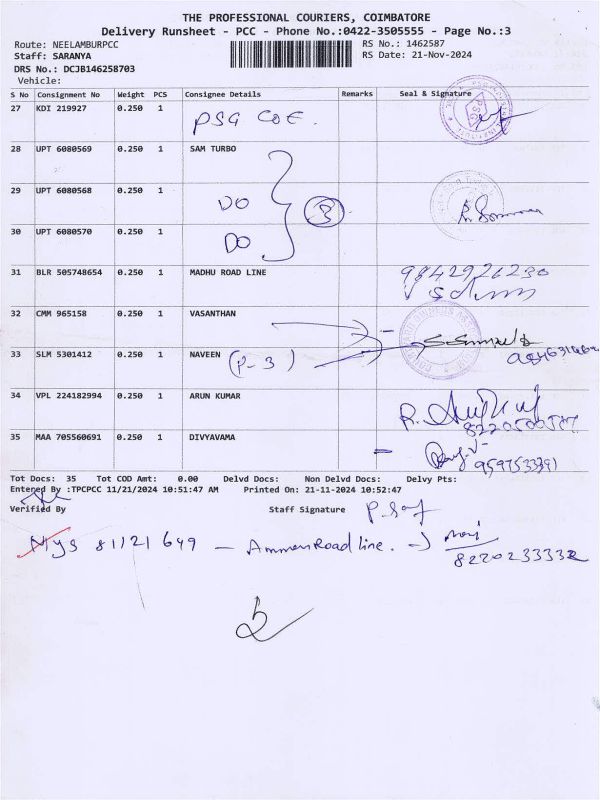 THE PROFESSIONAL COURIERS, COIMBATORE
Delivery Runsheet - PCC - Phone No.:0422-3505555 - Page No.:3
Route: NEELAMBURPCC RS No.: 1462587
Staff: SARANYA RS Date: 21-Nov-2024
DRS No.: DCJB146258703
Vehicle:
S No Consignment No Weight PCS Consignee Details Remarks Seal & Signature
27 KDI 219927 0.250 1 PSG COE.
28 UPT 6080569 0.250 1 SAM TURBO
29 UPT 6080568 0.250 1 DO 3
30 UPT 6080570 0.250 1 DO
31 BLR 505748654 0.250 1 MADHU ROAD LINE 9842926230
32 CMM 965158 0.250 1 VASANTHAN
33 SLM 5301412 0.250 1 NAVEEN (P-3)
34 VPL 224182994 0.250 1 ARUN KUMAR
35 MAA 705560691 0.250 1 DIVYAVAMA
Tot Docs: 35 Tot COD Amt: 0.00 Delvd Docs: Non Delvd Docs: Delvy Pts:
Entered By :TPCPCC 11/21/2024 10:51:47 AM Printed On: 21-11-2024 10:52:47
Verified By Staff Signature
Mys 81121649 - Ammen Road line. →
8220233332